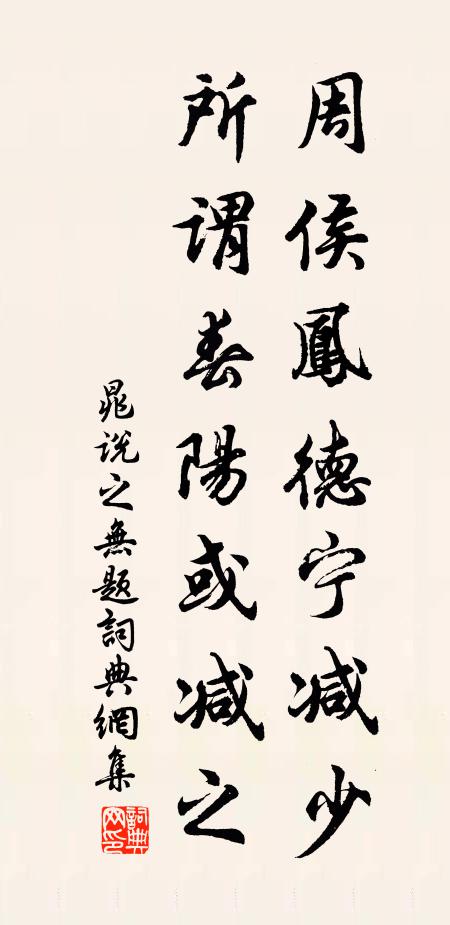 周侯鳳德宁减少
所谓春陽或减之
晁说之無题詞典網集
詞典网印